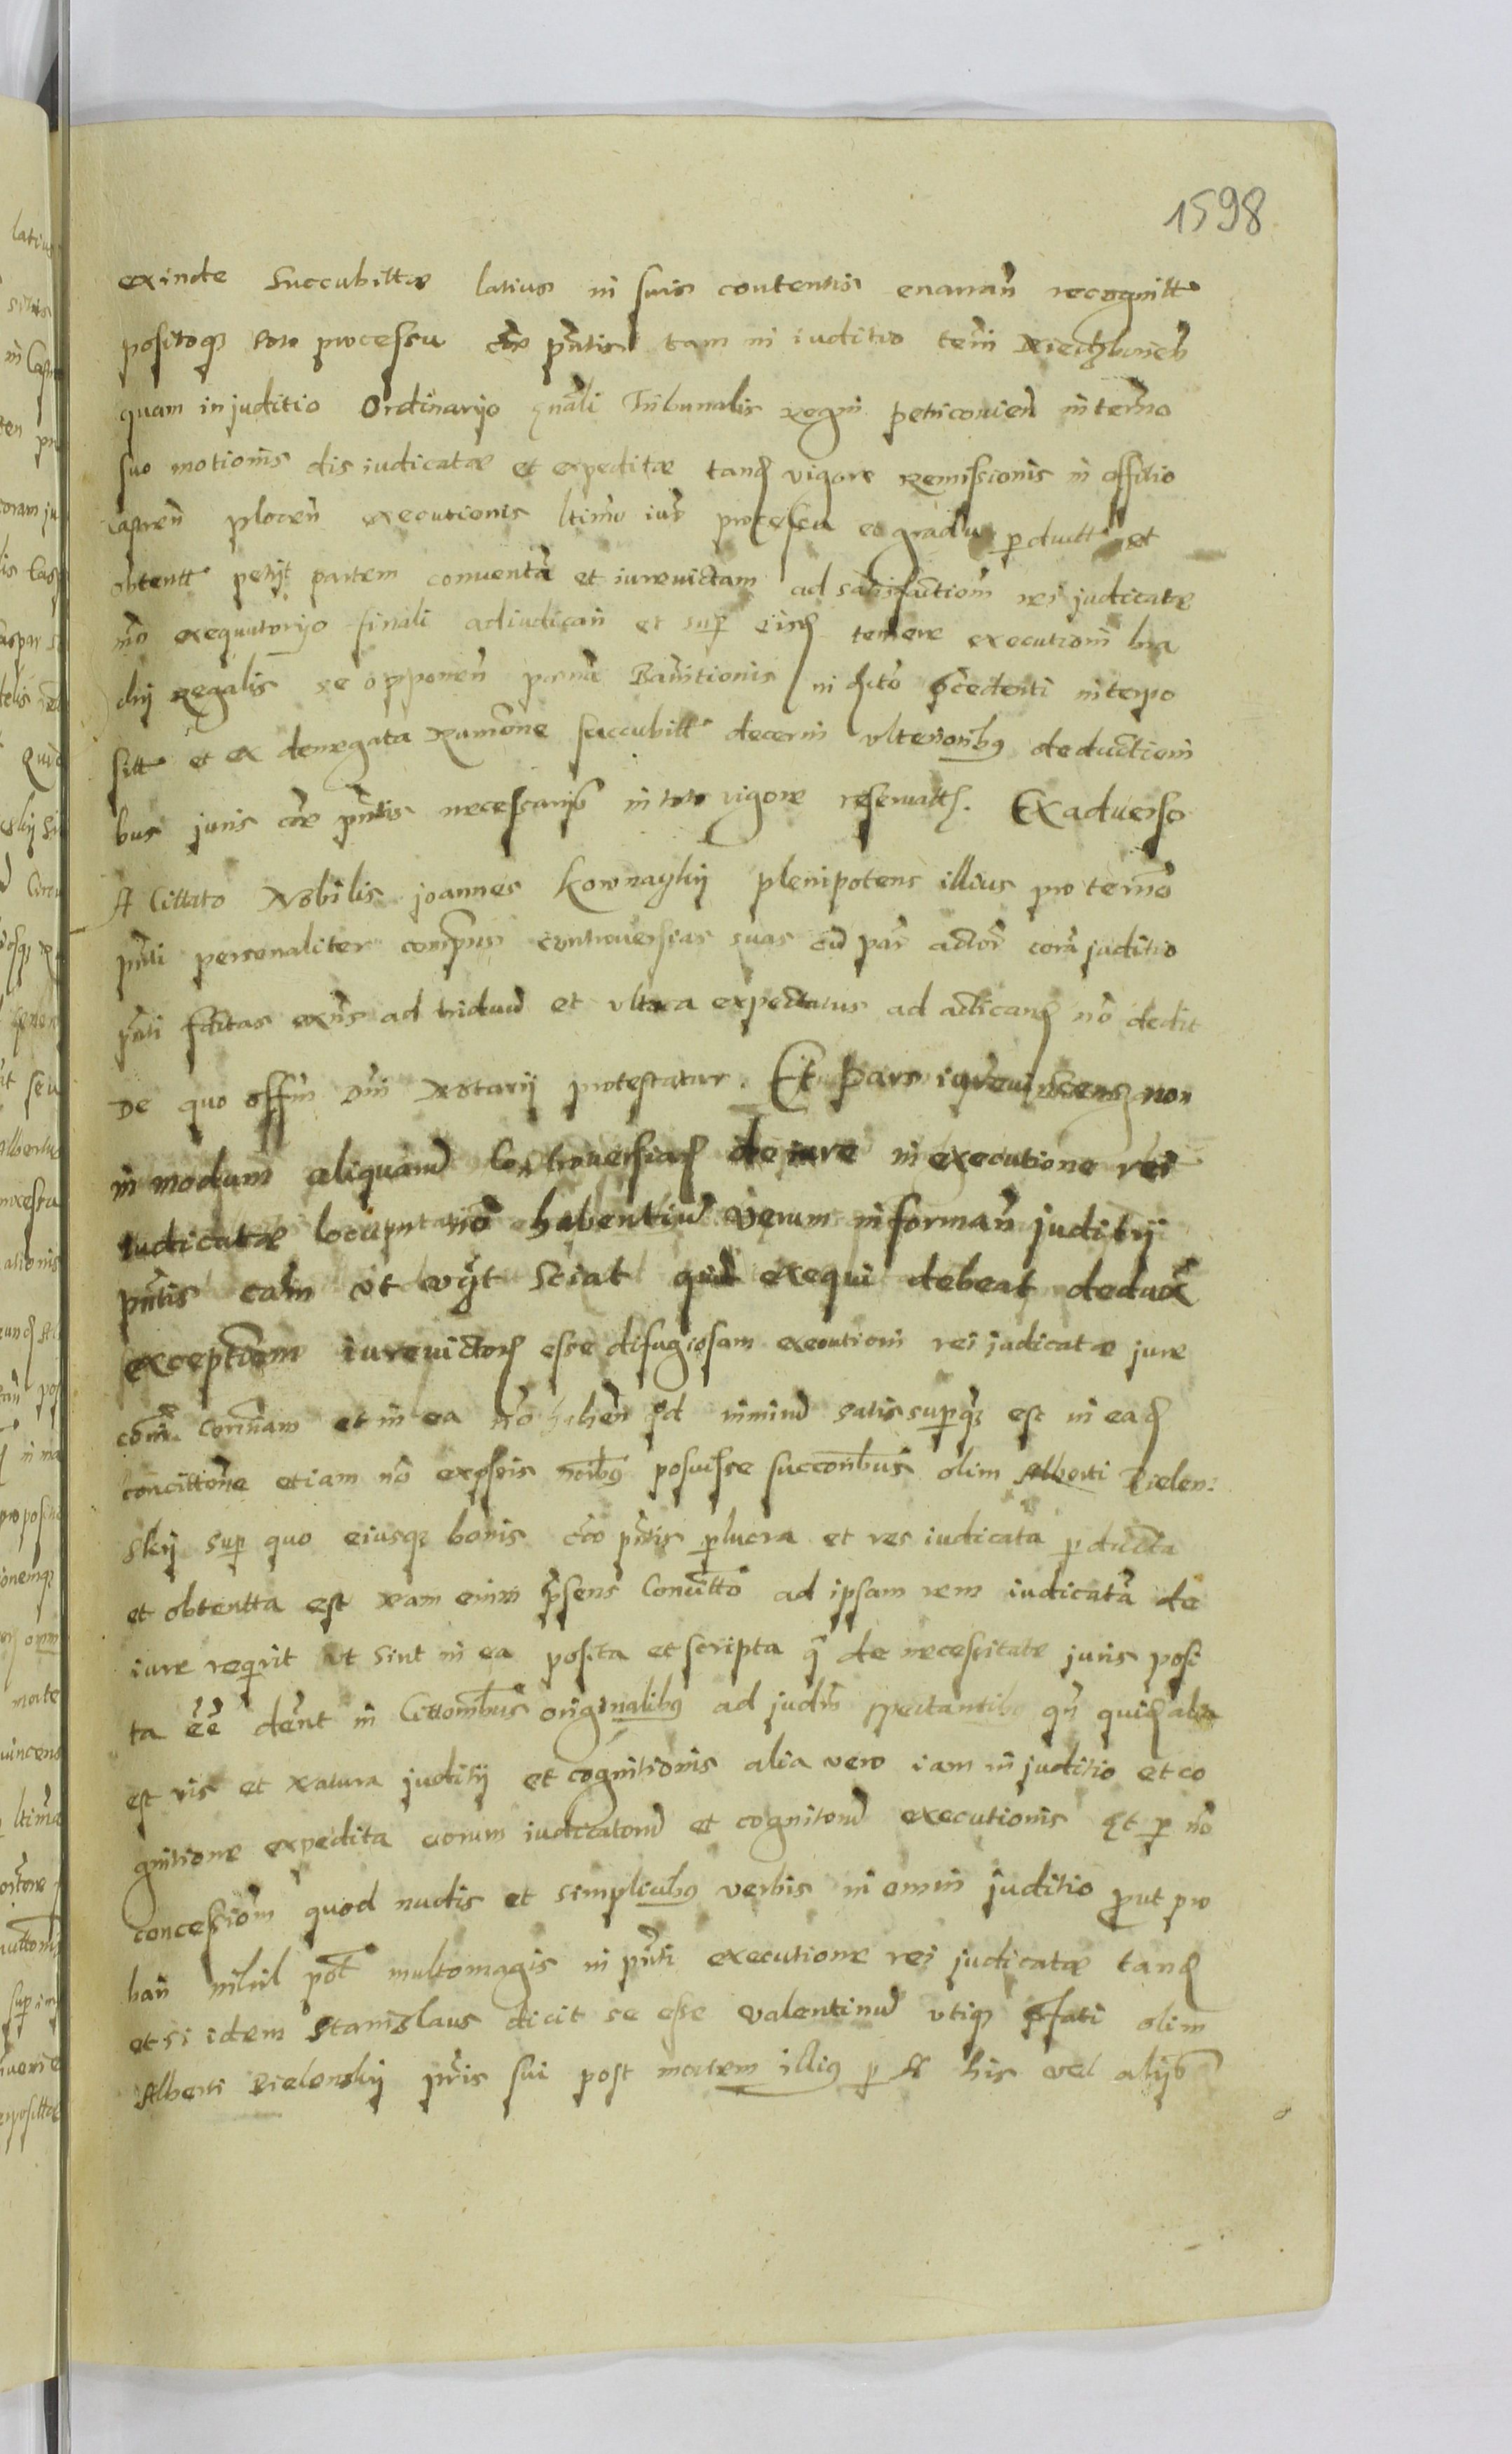 1598
exinde Succubittæ latius in suis contentis enarrañ recognitt
positoq3 toto processu coræ pñtis tam in iuditio terñ
quam in juditio Ordinarijo gñali Tribunalis regni peticovien in termo
suo motionis disiudicatæ et expeditæ tand vigore Remissionis in offitio
castren plocen executionis ltimo iur processu eo gradu p ductt et
obtentt petijt partem conventã et iurevictam ad satisfactiom rei judicatæ
mõ exequutorijo finali adiudicañ et sup temere executioni bra
chij Regalis se opponen pœnã Banitionis in precedenti interpo
sitt et ex denegata Rumõne succubitt decerni vlterioribus deductioni
bus juris coræ pñtis necessarijs in toto vigore reservatts. Ex adverso
A Cittato Nobilis joannes Kownaczkij plenipotens illius pro termo
pñti personaliter compns controversias suas cũ par actor corã juditio
pñti fditas exñs ad triduũ et vltra expectatus ad adicand nõ dedit
De quo offm Dni Notarij protestatur. Et Pars iurevincens non
in modum aliquarũ Controversiarũ de iure in executione rei
iudicatæ locum nõ habentiũ verum informañ juditij
pñtis cãm vt vijt Sciat quid exequi debeat deduxt
exceptiom iurevictors esse difugiosam executioni rei judicatæ jure
com. Contrariam et in ea nõ haben qd nimiũ satis superq3 est in ead
concittone etiam nõ expssis noibus posuisse succoribus olim Alberti Bielen:
skij sup quo eiusq3 bonis coræ pñtis p lucra et res iudicata p ducta
et obtentta est Nam enim præsens Concitto ad ipsam rem iudicatã de
iure reqrit vt sint in ea posita et scripta q de necessitate juris posi
ta ẽẽ dent in Cittonibus originalibus ad judm spectantibo qñ quid alia
est vis et Natura juditij et cognitionis alia vero iam in juditio et co
gnitione expedita eorum iudicatorũ et cognitorũ executionis Et p nõ
concessiom quod nudis et simplicibus verbis in omni juditio prout pro
bañ nihil pot multomagis in pñti executione rei judicatæ tand
et si idem Stanislaus dicit se esse Valentinũ vtiq3 pfati olim
Alberti Bielenskij pris sui post mortem illius p A his vel alijs